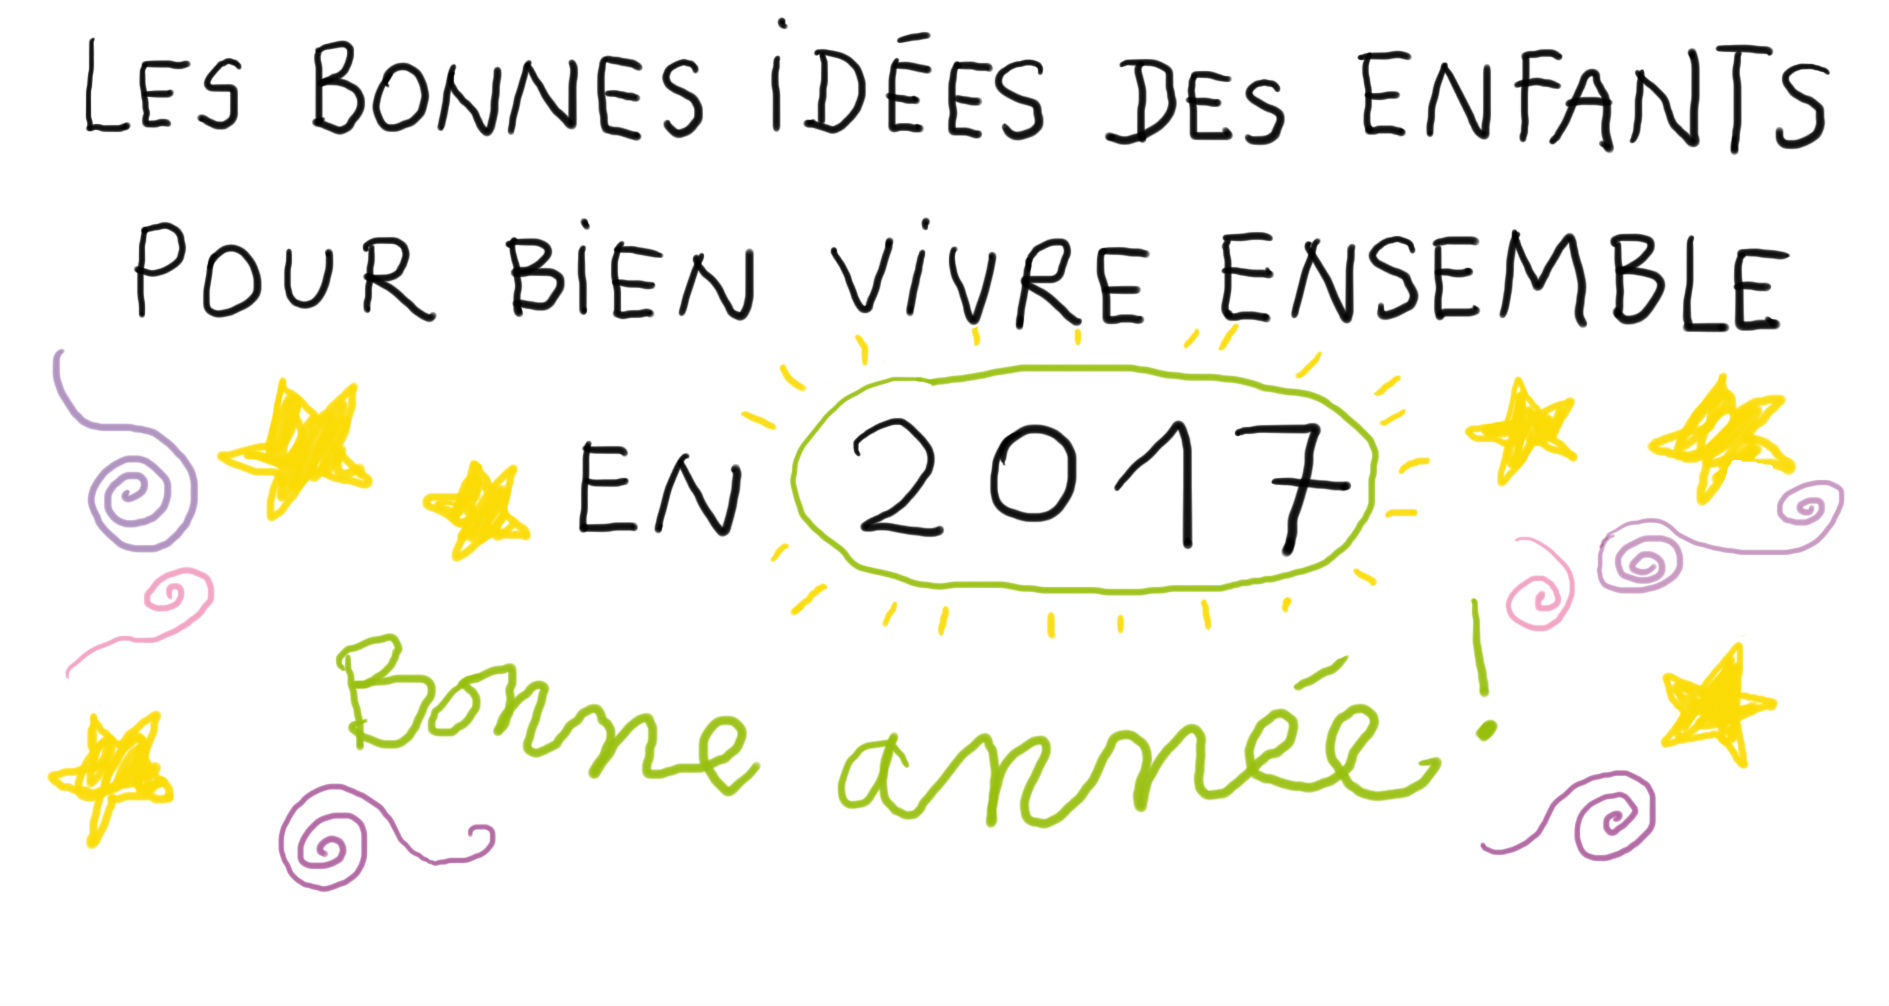 LES BONNES IDÉES DES ENFANTS
POUR BIEN VIVRE ENSEMBLE
EN 2017
Bonne année !